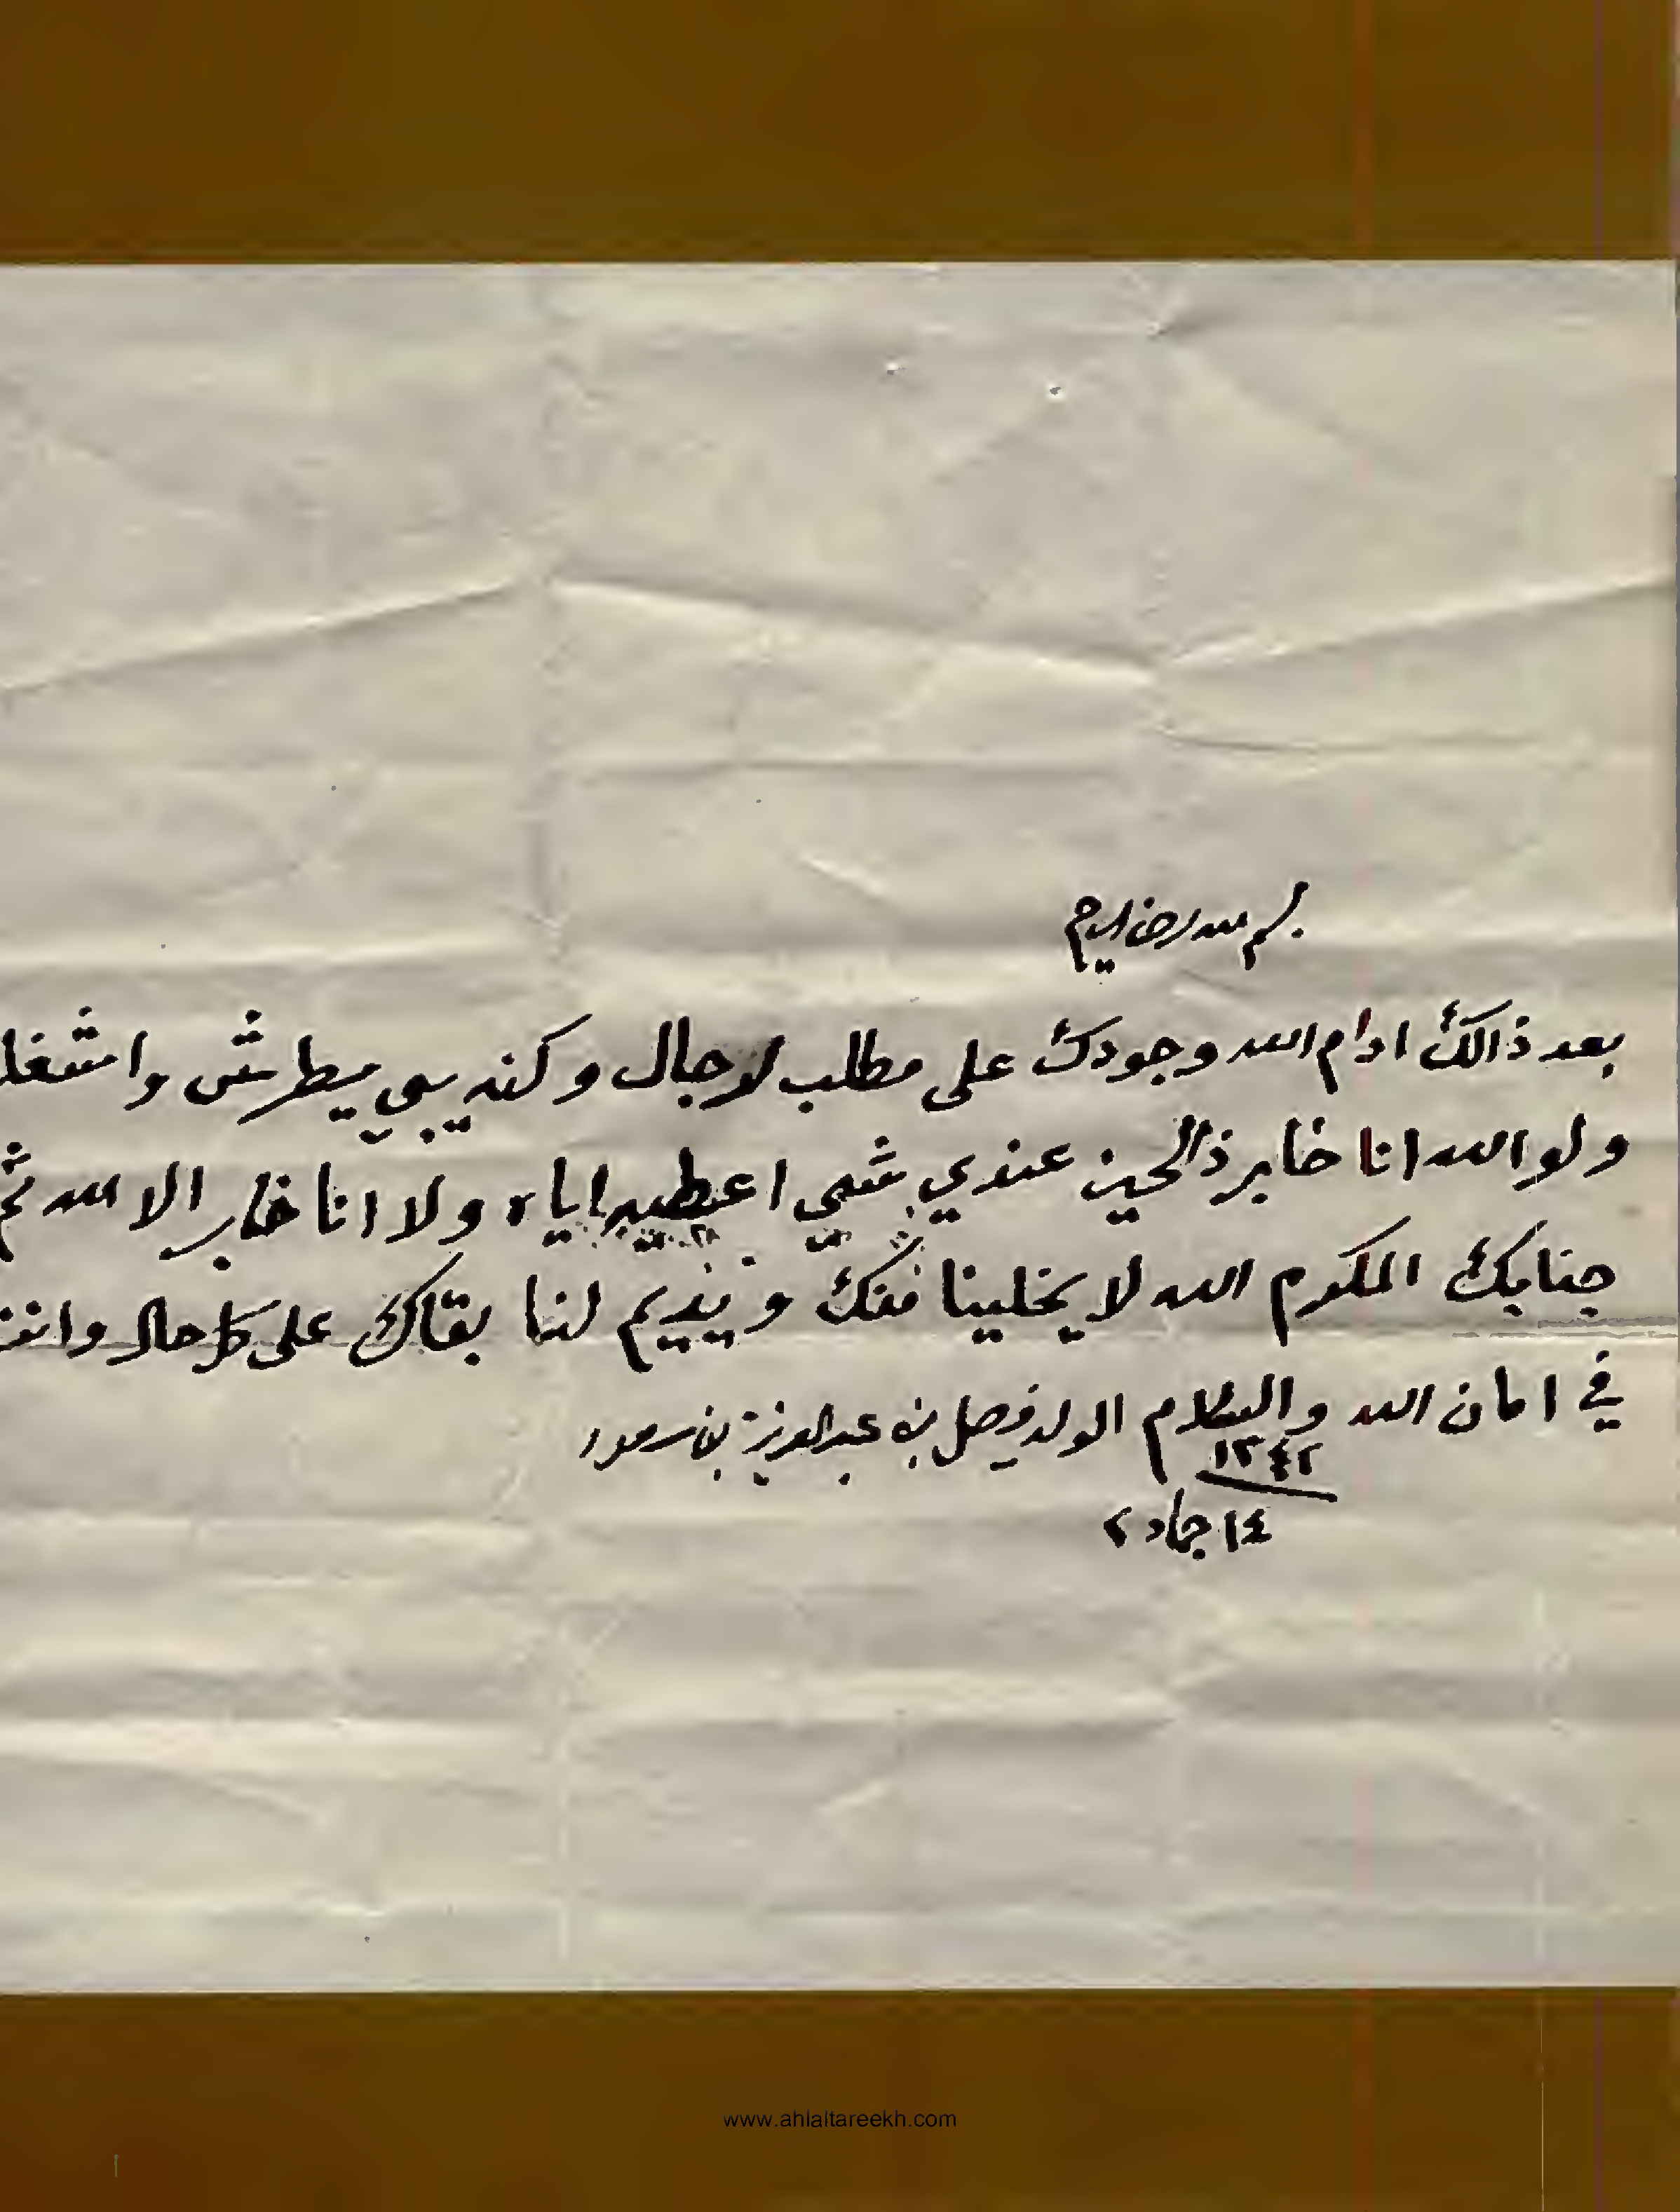 بسم الله الرحمن الرحيم
بعد ذالك ادام الله وجودك على مطلب لوجال وكنه يبي ميطرش واشغلـ
ولو الله انا خابر ذالحين عندي شي اعطيه اياه ولا انا خابر الا الله ثم
جنابك المكرم الله لا يخلينا منك ويديم لنا بقاك على كل حال وانتـ
في امان الله والسلام الولد فيصل بن عبدالعزيز بن سعود
١٣٤٢
١٤ جماد ٢
www.ahlaltareekh.com